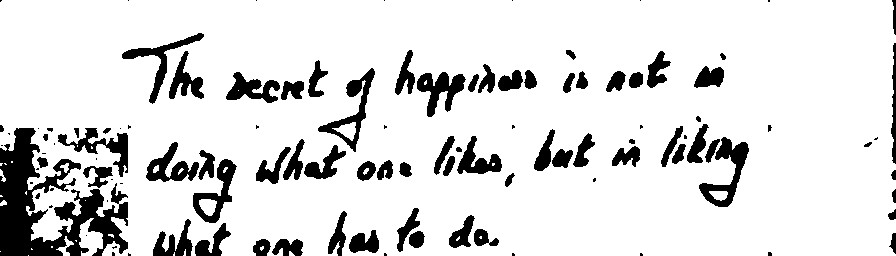 The secret of happiness is not in
doing what one likes, but in liking
what one has to do.